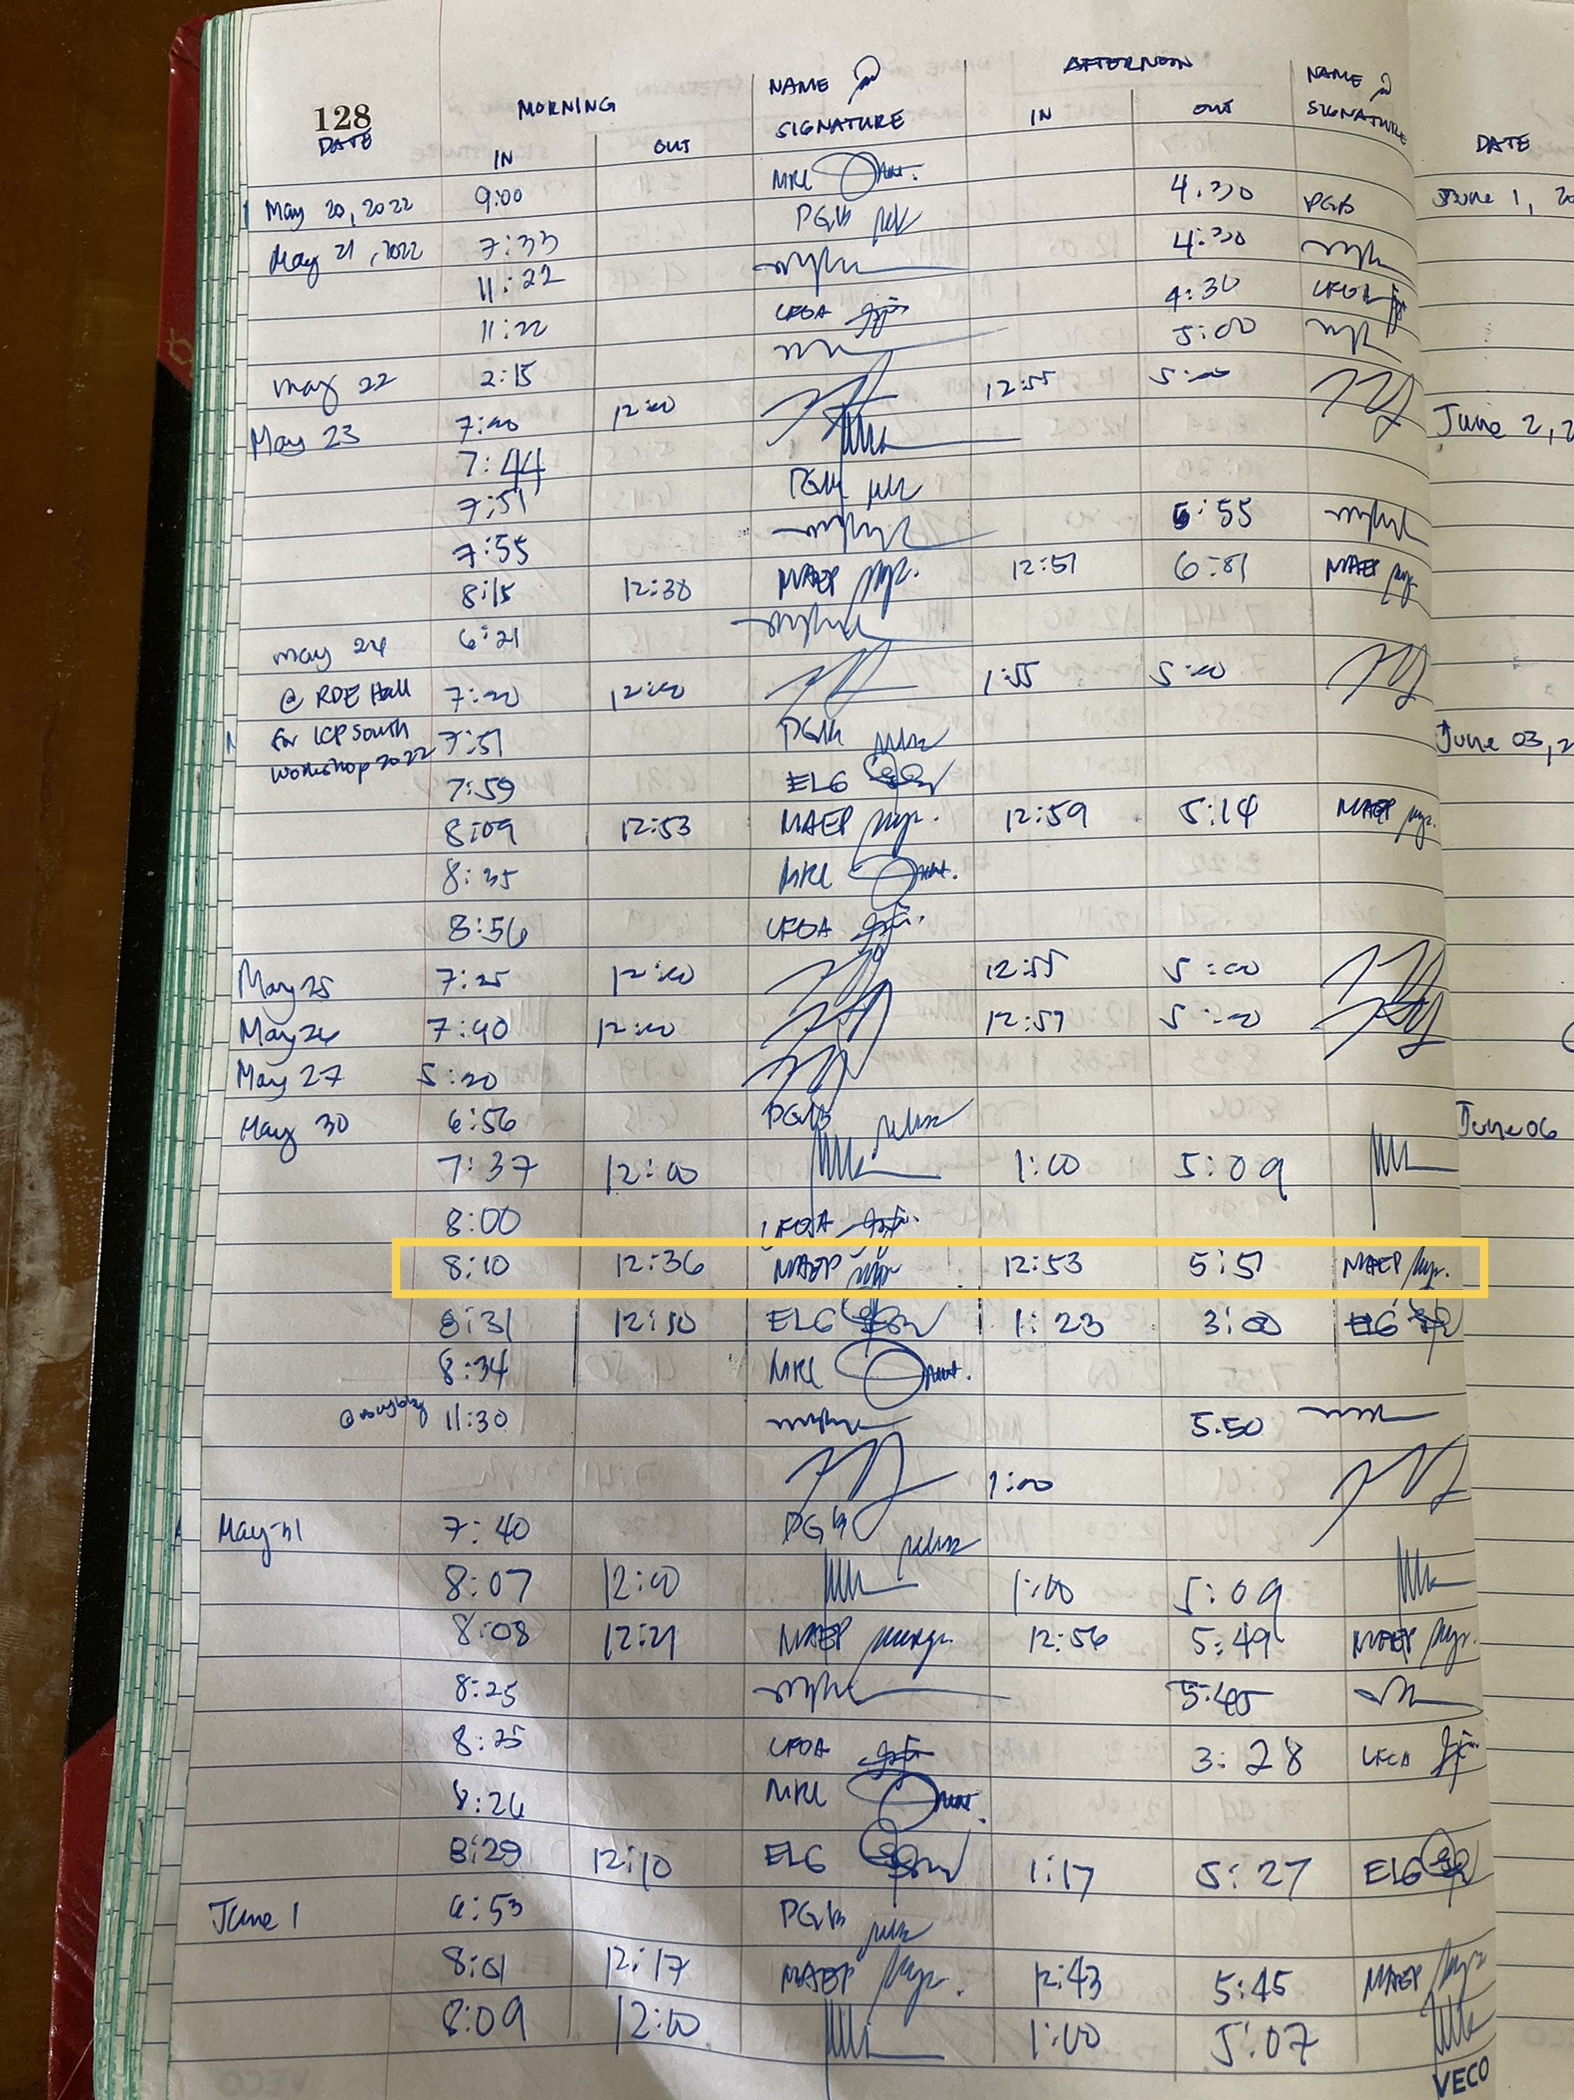 128
DATE MORNING NAME & SIGNATURE AFTERNOON NAME & SIGNATURE DATE
IN OUT IN OUT
May 20, 2022 9:00 MRL 4:30 PGB June 1,
May 21, 2022 7:33 PGB 4:30
11:22 4:30 LFOA
11:22 LFOA 5:00
May 22 2:15 12:55 5:00
May 23 7:00 12:00 June 2,
7:44
7:51 PGB
7:55 5:55
8:15 12:38 MAEP 12:51 6:01 MAEP
May 24 6:21
@ RDE Hall 7:20 12:00 1:55 5:00
for ICP South 7:51 PGB June 03,
Workshop 2022 7:59 ELG
8:09 12:53 MAEP 12:59 5:14 MAEP
8:35 MRL
8:56 LFOA
May 25 7:25 12:00 12:55 5:00
May 26 7:40 12:00 12:57 5:00
May 27 5:20
May 30 6:56 PGB June 06
7:37 12:00 1:00 5:09
8:00 LFOA
8:10 12:36 MAEP 12:53 5:51 MAEP
8:31 12:50 ELG 1:23 3:00 ELG
8:34 MRL
11:30 5:50
1:00
May 31 7:40 PGB
8:07 12:00 1:00 5:09
8:08 12:21 MAEP 12:56 5:49 MAEP
8:25 5:45
8:25 LFOA 3:28 LFOA
8:26 MRL
8:29 12:10 ELG 1:17 5:27 ELG
June 1 6:53 PGB
8:01 12:17 MAEP 12:43 5:45 MAEP
8:09 12:00 1:00 5:07
VECO